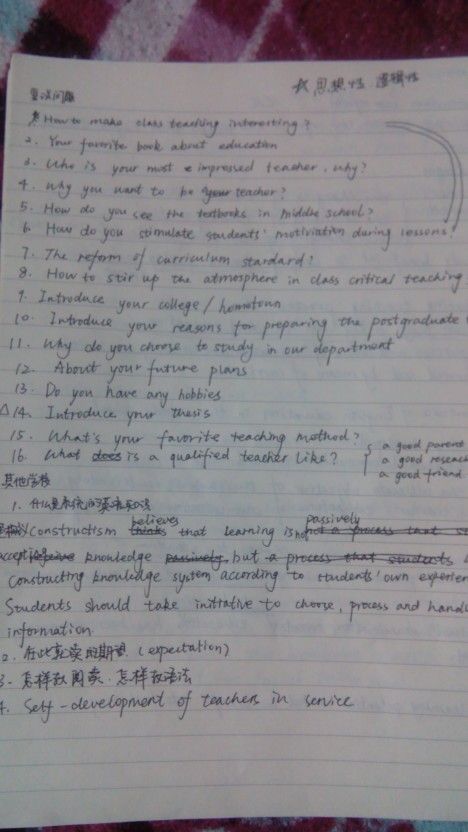 思想性 逻辑性
复试问题
1. How to make class teaching interesting?
2. Your favorite book about education
3. Who is your most impressed teacher, why?
4. Why you want to be teacher?
5. How do you see the textbooks in middle school?
6. How do you stimulate students' motivation during lessons?
7. The reform of curriculum stardard?
8. How to stir up the atmosphere in class critical teaching.
9. Introduce your college/hometown
10. Introduce your reasons for preparing the postgraduate
11. Why do you choose to study in our department
12. About your future plans
13. Do you have any hobbies
△14. Introduce your thesis
15. What's your favorite teaching method?
16. What is a qualified teacher like? { a good parent
a good
a good friend
其他学校
1. 什么是
Constructism believes that learning is not passively
knowledge but
Constructing knowledge system according to students' own
Students should take initiative to choose, process and
information.
2. 在此 的期望 (expectation)
3. 怎样教阅读. 怎样教语法
4. Self-development of teachers in service